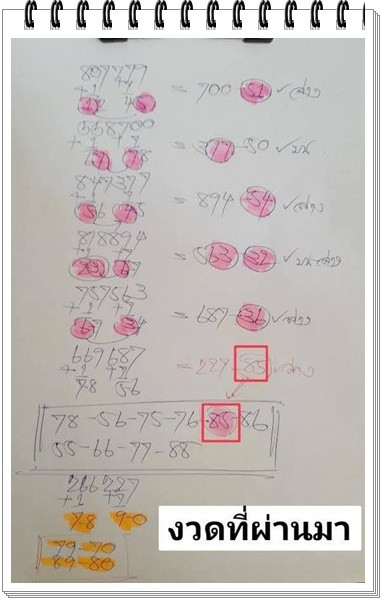 807777
+1 +7
12 45 = 700 - 51 ✓ ล่าง
558700
+1 +7
67 78 = 377 - 50 ✓ บน
847377
+1 +7
56 45 = 894 - 54 ✓ ล่าง
818894
+1 +7
23 67 = 563 - 32 ✓ บน-ล่าง
757563
+1 +7
67 34 = 687 - 36 ✓ ล่าง
669687
+1 +7
78 56 = 227 - 85 ✓ ล่าง
78 - 56 - 75 - 76 - 85 - 86
55 - 66 - 77 - 88
266227
+1 +7
7-8 9-0
79-70
89-80
งวดที่ผ่านมา